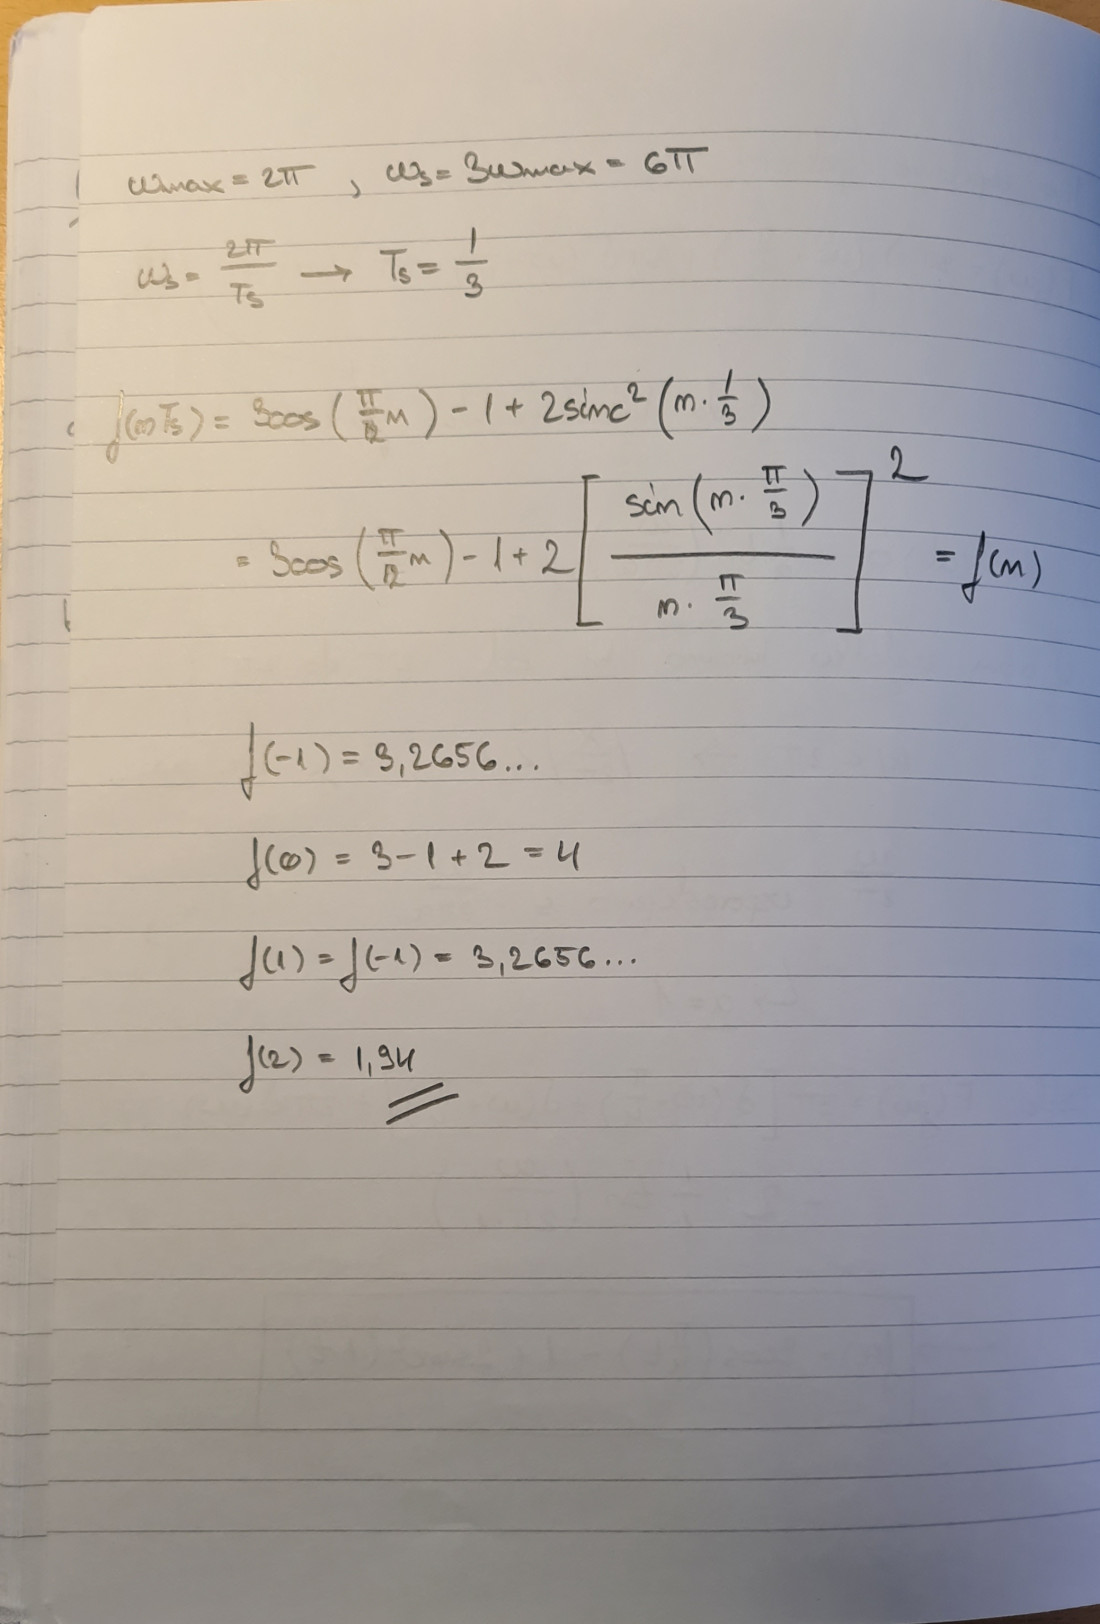 ωmax = 2π , ωs = 3ωmax = 6π
ωs = 2π/Ts → Ts = 1/3
f(nTs) = 3cos(π/12 n) - 1 + 2sinc²(n · 1/3)
= 3cos(π/12 n) - 1 + 2[sin(n · π/3) / (n · π/3)]² = f(n)
f(-1) = 3,2656...
f(0) = 3 - 1 + 2 = 4
f(1) = f(-1) = 3,2656...
f(2) = 1,94